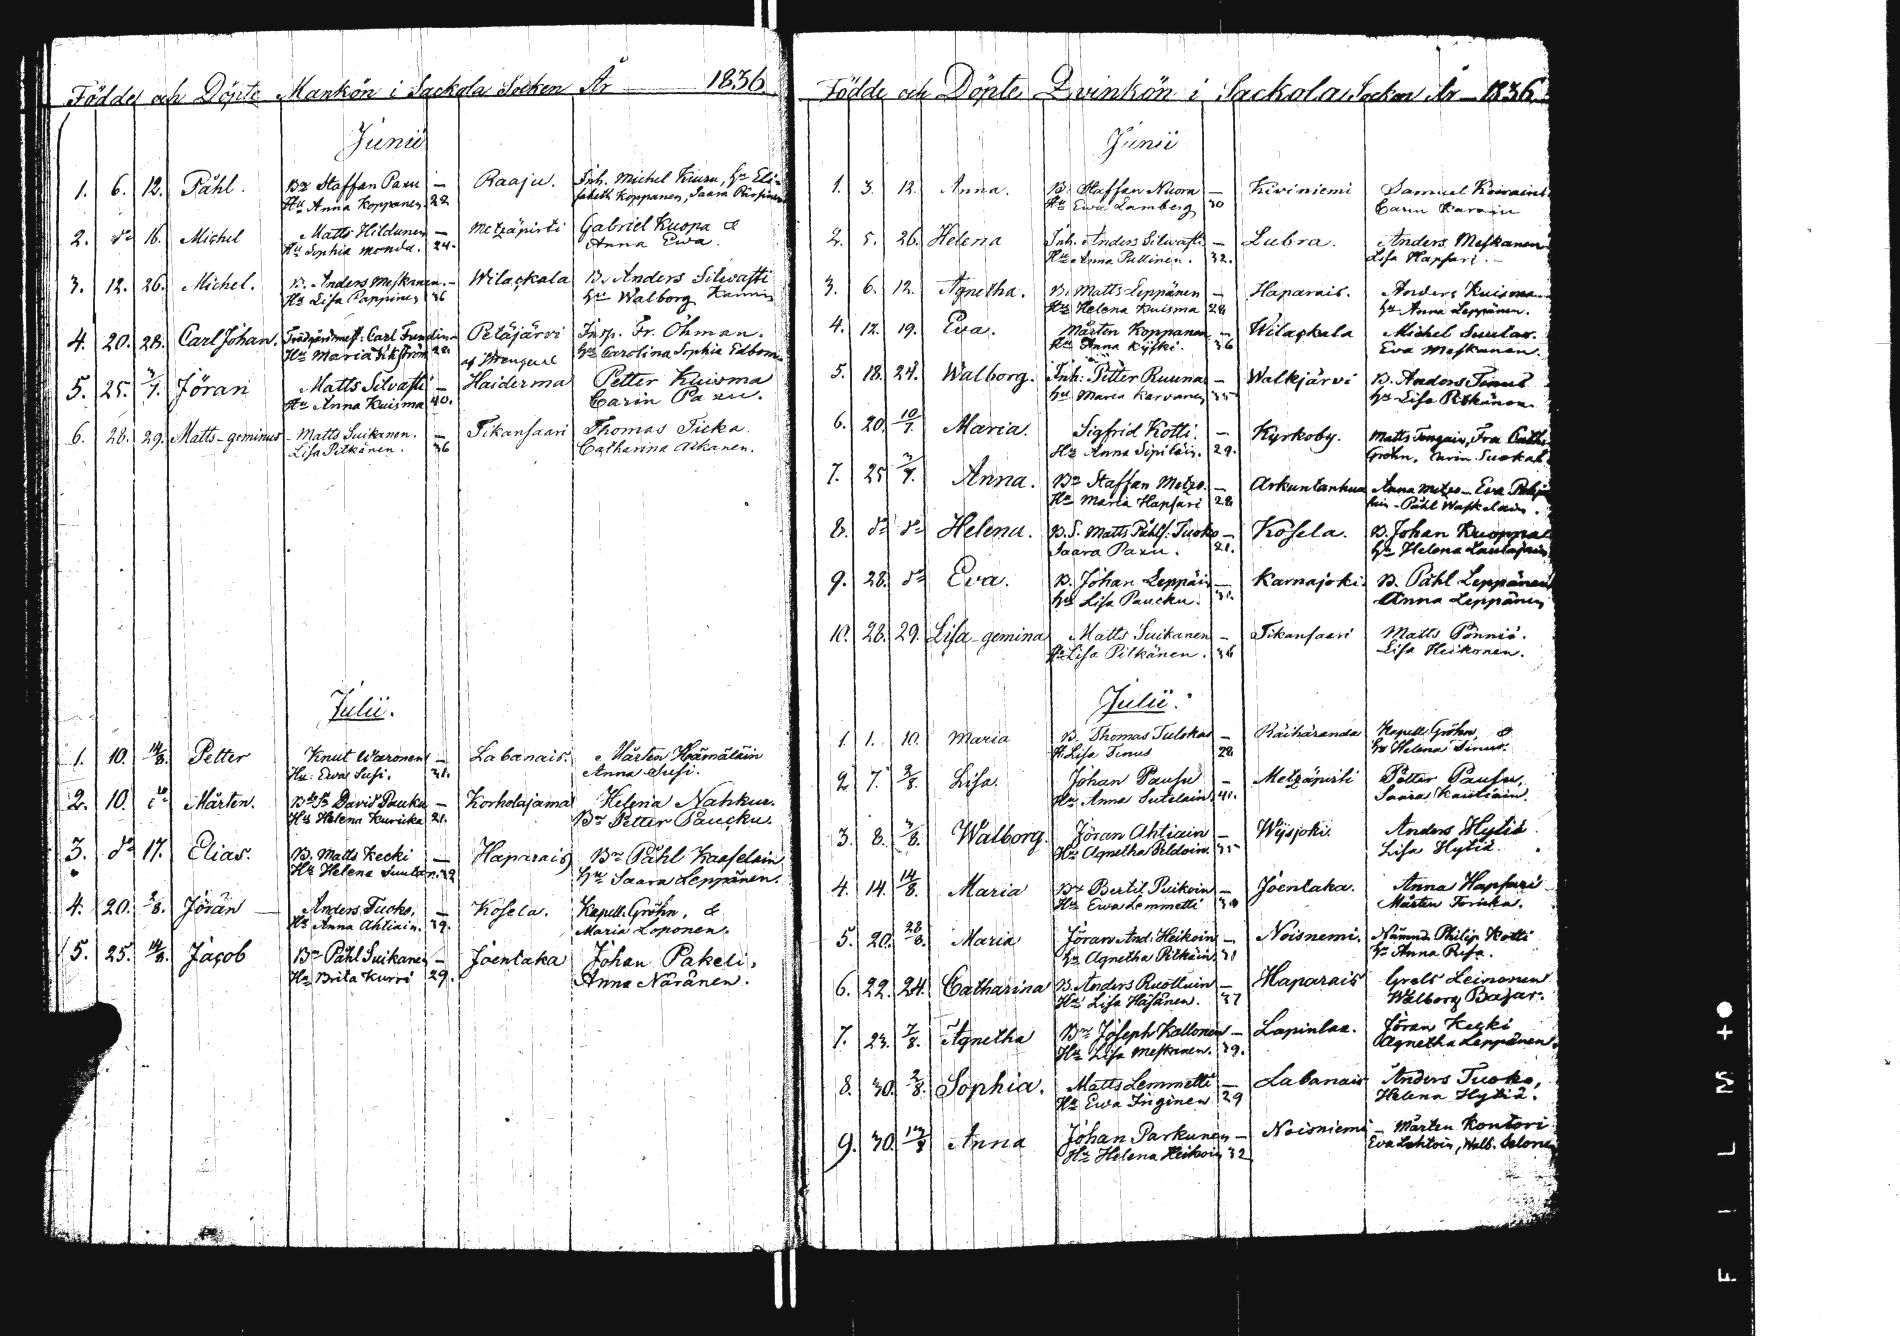 Födde och Döpte Mankön i Sackola Socken År 1836
Junii
1. 6. 12. Påhl. Br Staffan Paxu — Raaju. Inh. Michel Kiuru, Hu Eli-
Hu Anna Koppanen. 22 sabeth Koppanen, Saara
2. do 16. Michel Matts Hildunen — Metzäpirti Gabriel Kuopa &
Hu Sophia Monda. 24. Anna Ewa.
3. 12. 26. Michel. B. Anders Meskanen. — Wilackala B. Anders Silwasti
Hu Lisa Pappinen 36 Hu Walborg
4. 20. 28. Carl Johan. Carl Petäjärvi Insp. Fr. Öhman.
Hu Maria 28. af Hu Carolina Sophia
5. 25. 3/7. Jöran Matts Silvasti — Haiderma Petter Kuisma
Hu Anna Kuisma 40. Carin Paxu.
6. 28. 29. Matts-geminus Matts Suikanen. — Tikansaari Thomas Ticka.
Lisa Pitkänen. 36 Catharina Aikanen.
Julii.
1. 10. 14/8. Petter Knut Waronen — Labanais. Mårten Hämäläin
Hu: Ewa Susi. 31. Anna Susi.
2. 10. do Mårten. David Pauku — Korholajama Helena Nahkur.
Hu Helena Kuricka 21. Br Petter Paucku.
3. do 17. Elias. B. Matts Kecki — Haparais Br Påhl Kaaselain
Hu Helena 32 Hu Saara Leppänen.
4. 20. 2/8. Jöran — Anders Tucko. — Kosela. Kapell. Gröhn, &
Hu Anna Ahtiain. 39. Maria Loponen.
5. 25. 14/8. Jacob Br Påhl Suikanen — Joentaka Johan Pakeli,
Hu Brita Kurri 29. Anna Näränen.
Födde och Döpte Qvinkön i Sackola Socken År — 1836.
Junii
1. 3. 12. Anna. B. Staffan Nuora — Kiviniemi Samuel
Hu Ewa Lamberg 30 Carin
2. 5. 26. Helena Inh. Anders Silwasti — Lubra. Anders Meskanen
Hu Anna Pullinen. 32. Lisa Hapsari. —
3. 6. 12. Agnetha. B. Matts Leppänen — Haparais. Anders Kuisma
Hu Helena Kuisma 28 Hu Anna Leppänen.
4. 12. 19. Eva. Mårten Koppanen — Wilackala Michel Suutar.
Hu Anna 36 Eva Meskanen.
5. 18. 24. Walborg. Inh: Petter Ruuna — Walkjärvi B. Anders Tinus
Hu Maria Karvanen 35 Hu Lisa Pitkänen
6. 20. 10/7 Maria. Sigfrid Kotti. — Kyrkoby. Matts
Hu Anna Sipiläin. 29. Gröhn, Carin
7. 25 3/7. Anna. Br Staffan Metzo. — Arkuntanhua Anna Metzo — Eva
Hu Maria Hapsari 28 Påhl
8. do do Helena. B. S. Matts Påhls: Tucko — Kosela. B. Johan Kuoppala
Saara Paxu. 21. Hu Helena
9. 28. do Eva. B. Johan Leppäin — Karnajoki. B. Påhl Leppänen
Hu Lisa Paucku. Anna Leppänen
10. 28. 29. Lisa-gemina Matts Suikanen — Tikansaari Matts Pönniö.
Hu Lisa Pitkänen. 36 Lisa Heikonen.
Julii.
1. 1. 10. Maria B. Thomas Tulokas — Räihäranda Kapell. Gröhn, &
H. Lisa Tinus 28 Hu Helena Sirus.
2 7. 3/8. Lisa. Johan Pausu — Metzäpirti Petter Pausu,
Hu Anna Sutelain 41. Saara Kautiain.
3. 8. 3/8. Walborg. Jöran Ahtiain — Wysjoki. Anders Hytiä
Hu Agnetha Peldoin. 35 Lisa Hytiä.
4. 14. 14/8. Maria Br Bertil Puikoin — Joentaka. Anna Hapsari
Hu Ewa Lemmetti Mårten Toricka.
5. 20. 28/8. Maria Jöran And: Heikoin — Noisnemi. Nämnd. Philip Kotti
Hu Agnetha Pitkäin 31 Hu Anna Risa.
6. 22. 24. Catharina B. Anders Ruottuin — Haparais Grels Leinonen
Hu Lisa Häsänen. 37 Walborg Basar.
7. 23. 7/8. Agnetha Br Joseph Kallonen — Lapinlax. Jöran Kecki
Hu Lisa Meskanen. 39. Agnetha Leppänen.
8. 30. 2/8. Sophia. Matts Lemmetti — Labanais Anders Tucko,
Hu Ewa Inginen 29 Helena Hytiä.
9. 30. 14/8 Anna Johan Parkunen — Noisniemi — Mårten Kontori
Hu Helena Heikoin 32 Eva Lehtoin, Walb.
F I L M